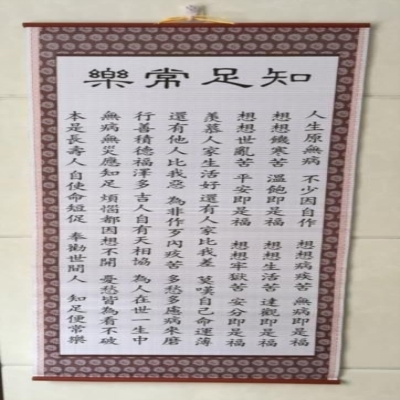 知足常樂
人生原無病 不少因自作 想想病疾苦 無病即是福
想想饑寒苦 溫飽即是福 想想生活苦 達觀即是福
想想世亂苦 平安即是福 想想牢獄苦 安分即是福
羨慕人家生活好 還有人家比我差 莫嘆自己命運薄
還有他人比我惡 為非作歹內疚苦 多愁多慮病來磨
行善積德福澤多 吉人自有天相協 為人在世一生中
無病無災應知足 煩惱都因想不開 憂愁皆為看不破
本是長壽人 自使命短促 奉勸世間人 知足便常樂